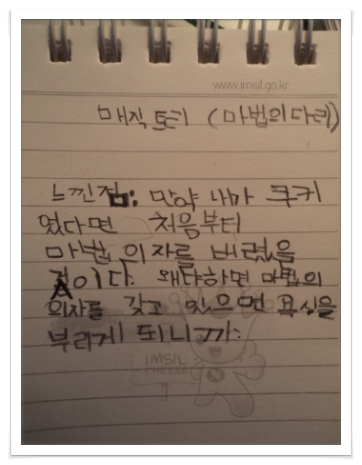 www.imsil.go.kr
매직 토리 (마법의다리)
느낀점: 만약 내가 쿠키
였다면 처음부터
마법 의자를 버렸을
것이다. 왜다하면 마법의
의자를 갖고 있으면 욕심을
부리게 되니까.
IMSIL
CHEESE